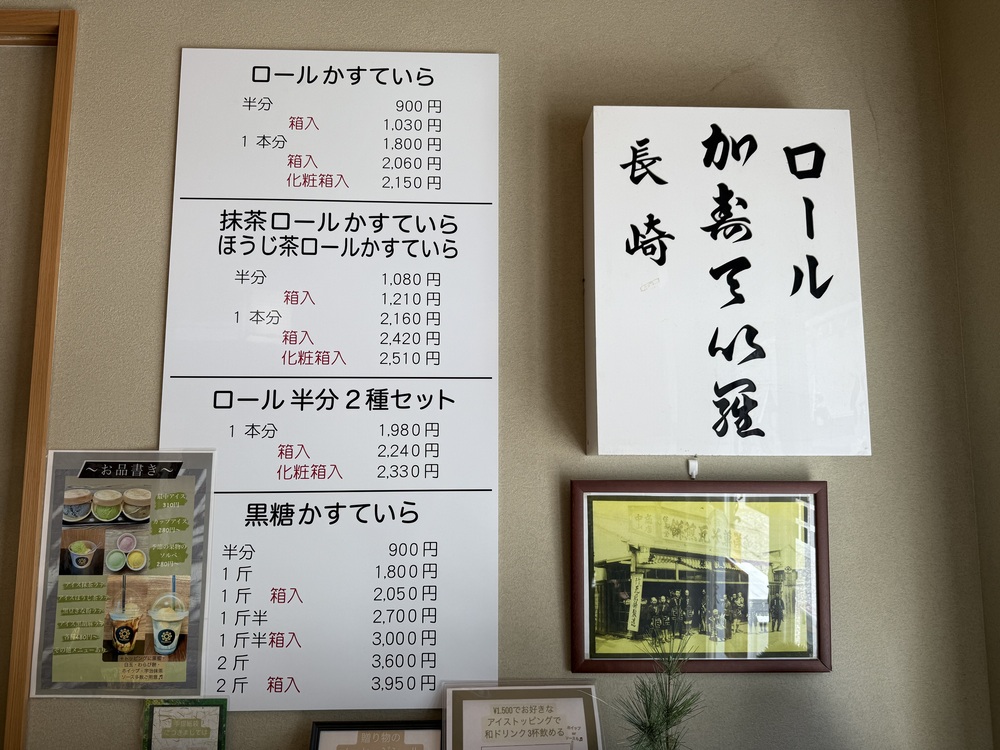 ロールかすていら
半分 900円
箱入 1,030円
1本分 1,800円
箱入 2,060円
化粧箱入 2,150円
抹茶ロールかすていら
ほうじ茶ロールかすていら
半分 1,080円
箱入 1,210円
1本分 2,160円
箱入 2,420円
化粧箱入 2,510円
ロール半分2種セット
1本分 1,980円
箱入 2,240円
化粧箱入 2,330円
黒糖かすていら
半分 900円
1斤 1,800円
1斤 箱入 2,050円
1斤半 2,700円
1斤半箱入 3,000円
2斤 3,600円
2斤 箱入 3,950円
ロール
加寿天以羅
長崎
～お品書き～
カップアイス
280円～
季節の果物の
ソルベ
280円～
贈り物の
¥1,500でお好きな
アイストッピングで
和ドリンク3杯飲める